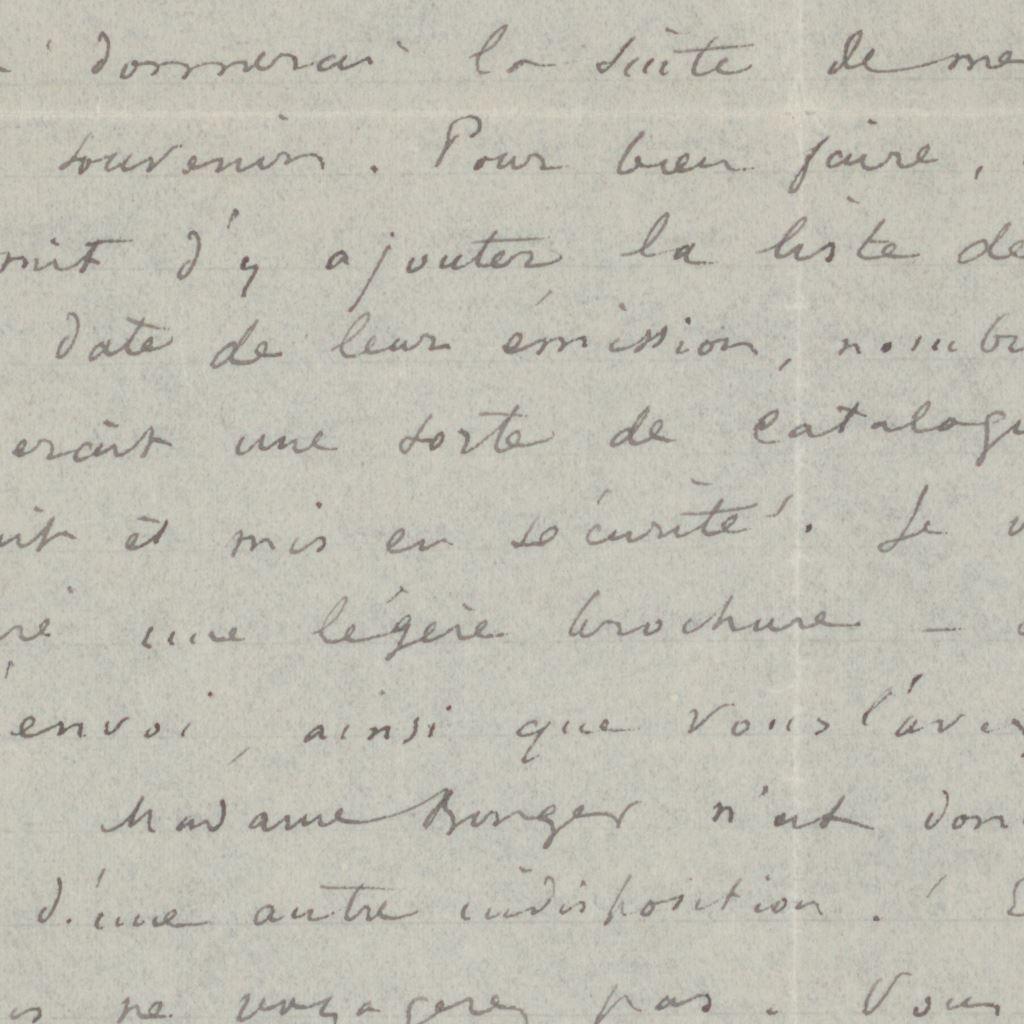 donnerai la suite de me
souvenirs. Pour bien faire,
d'y ajouter la liste de
date de leur émission, nombr
erait une sorte de catalogu
et mis en sécurité. Je v
une légère brochure –
'envoi, ainsi que vous l'avez
Madame Bonger n'est donc
d'une autre indisposition.
ne voyagerez pas. Vous